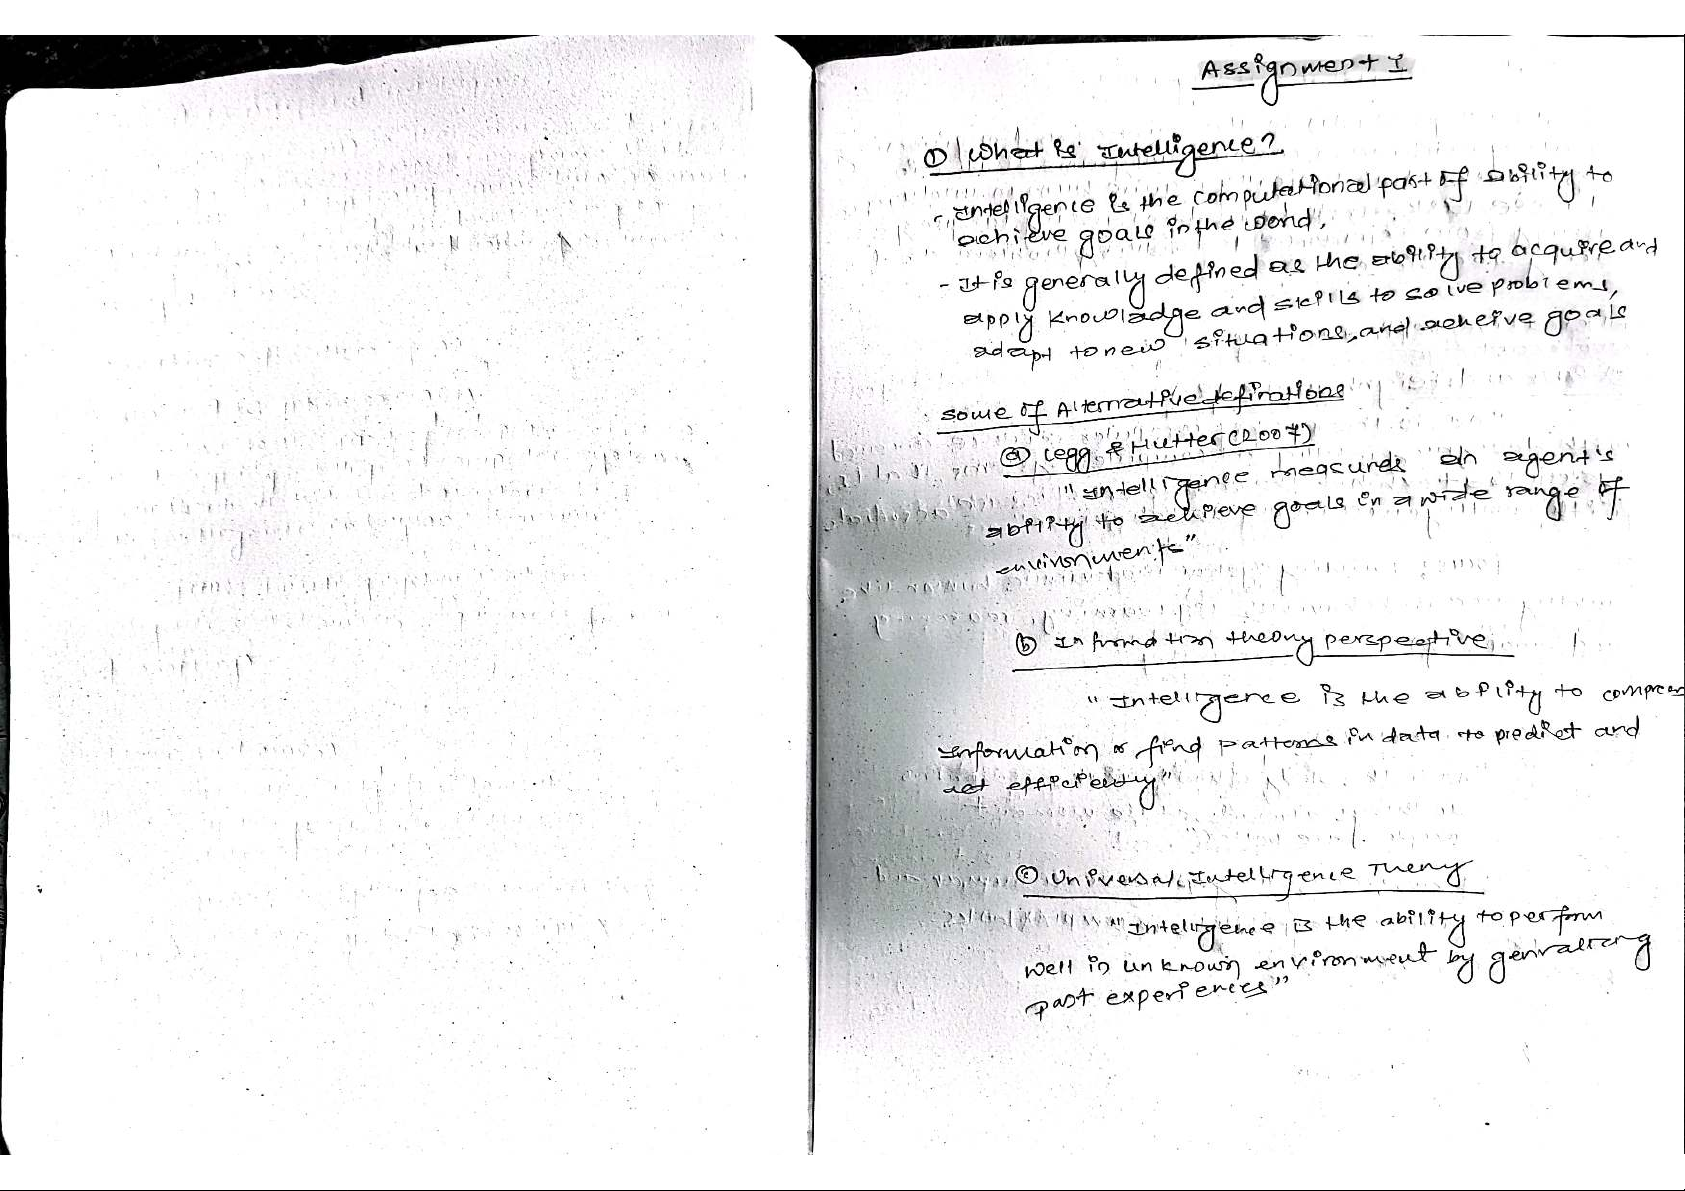 Assignment I
① What is Intelligence?
- Intelligence is the computational part of ability to
achieve goals in the word.
- It is generally defined as the ability to acquire and
apply knowladge and skills to solve problems,
adapt to new situations, and acheive goals
some of Alternative definations
ⓐ Legg & Hutter (2007)
"Intelligence measures an agent's
ability to achieve goals in a wide range of
environments"
ⓑ Information theory perspective
"Intelligence is the ability to compress
Information or find patterns in data to predict and
act efficiently"
ⓒ Universal Intelligence Theory
"Intelligence is the ability to perform
well in unknown environment by
past experiences"